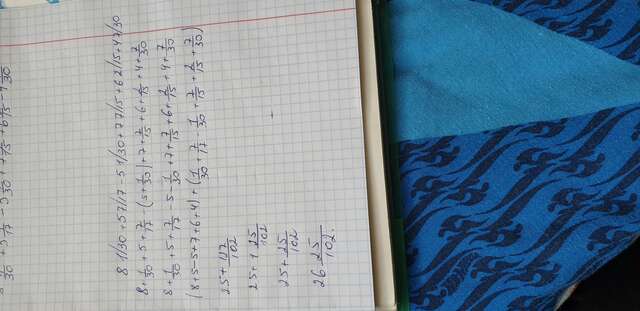 8 1/30 + 5 7/17 - 5 1/30 + 7 7/15 + 6 2/15 + 4 7/30
8 + 1/30 + 5 + 7/17 - (5 + 1/30) + 7 + 7/15 + 6 + 2/15 + 4 + 7/30
8 + 1/30 + 5 + 7/17 - 5 - 1/30 + 7 + 7/15 + 6 + 2/15 + 4 + 7/30
(8 + 5 - 5 + 7 + 6 + 4) + (1/30 + 7/17 - 1/30 + 7/15 + 2/15 + 7/30)
25 + 127/102
25 + 1 25/102
25 + 25/102
26 25/102.